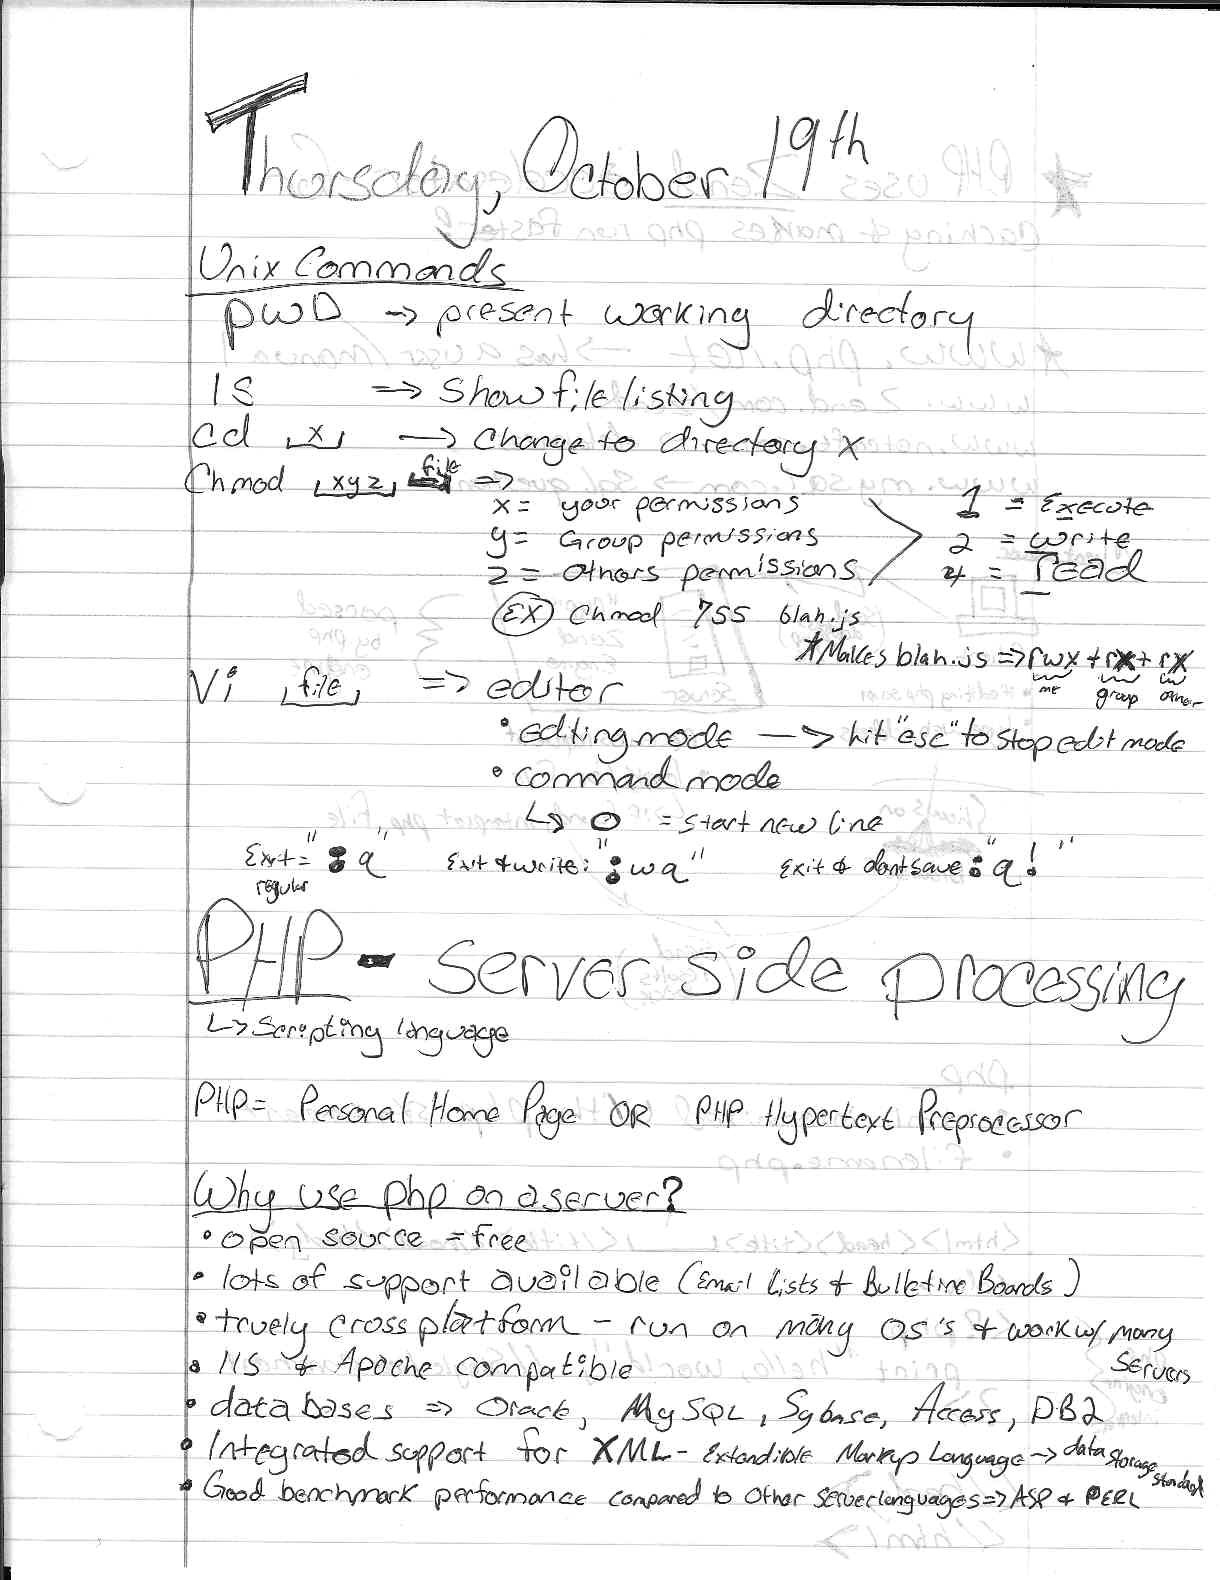 Thursday, October 19th
Unix Commands
pwD -> present working directory
ls => Show file listing
cd x -> Change to directory x
Chmod xyz file =>
x = your permissions
y = Group permissions
z = others permissions
1 = Execute
2 = write
4 = read
EX Chmod 755 blah.js
*Makes blah.js => rwx + rx + rx
me group other
Vi file => editor
• editing mode -> hit "esc" to stop edit mode
• command mode
↳ o = start new line
Exit = ":q" Exit & write: ":wq" Exit & dont save ":q!"
regular
PHP - server side processing
↳ Scripting language
PHP = Personal Home Page OR PHP Hypertext Preprocessor
Why use php on a server?
• open source = free
• lots of support available (Email Lists & Bulletine Boards)
• truely cross platform - run on many OS's & work w/ many
servers
• IIS & Apache compatible
• databases => Oracle, MySQL, Sybase, Access, DB2
• Integrated support for XML - Extandible Markup Language -> data storage standard
• Good benchmark performance compared to other server languages => ASP & PERL